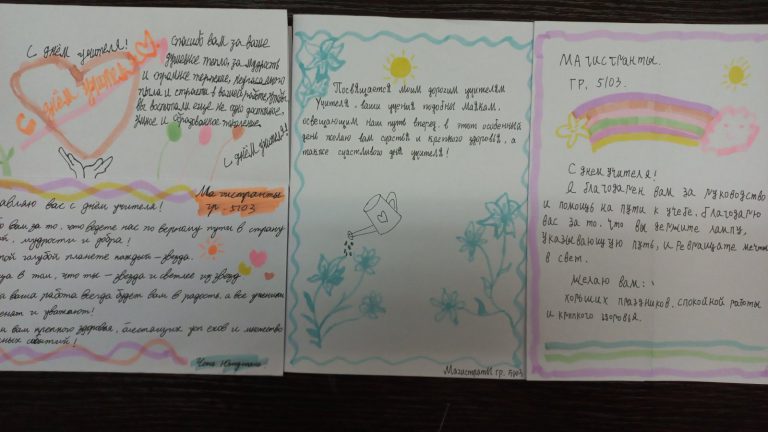 С днём учителя!
С днём учителя
спасибо вам за ваше
душевное тепло, за мудрость
и огромные терпение,
пыла и страсти в вашей работе,
вы воспитали ещё не одно достойное,
умное и образованное поколение.
С днём учителя!
Магистранты
гр. 5103
вляю вас с днём учителя!
о вам за то, что ведете нас по верному пути в страну
й, мудрости и добра!
той голубой планете каждый – звезда.
ца в том, что ты – звезда и светлее из звезд
а ваша работа всегда будет вам в радость, а все ученики
енят и уважают!
и вам крепкого здоровья, блестящих успехов и множество
ных событий!
Посвящается моим дорогим учителям
Учителя, ваши учения подобны маякам,
освещающим наш путь вперед. в этот особенный
день желаю вам счастья и крепкого здоровья, а
также счастливого дня учителя!
Магистранты гр. 5103
Магистранты.
гр. 5103.
С днем учителя!
Я благодарен вам за руководство
и помощь на пути к учебе, благодарю
вас за то, что вы держите лампу,
указывающую путь, и превращаете мечты
в свет.
Желаю вам:
хороших праздников, спокойной работы
и крепкого здоровья.